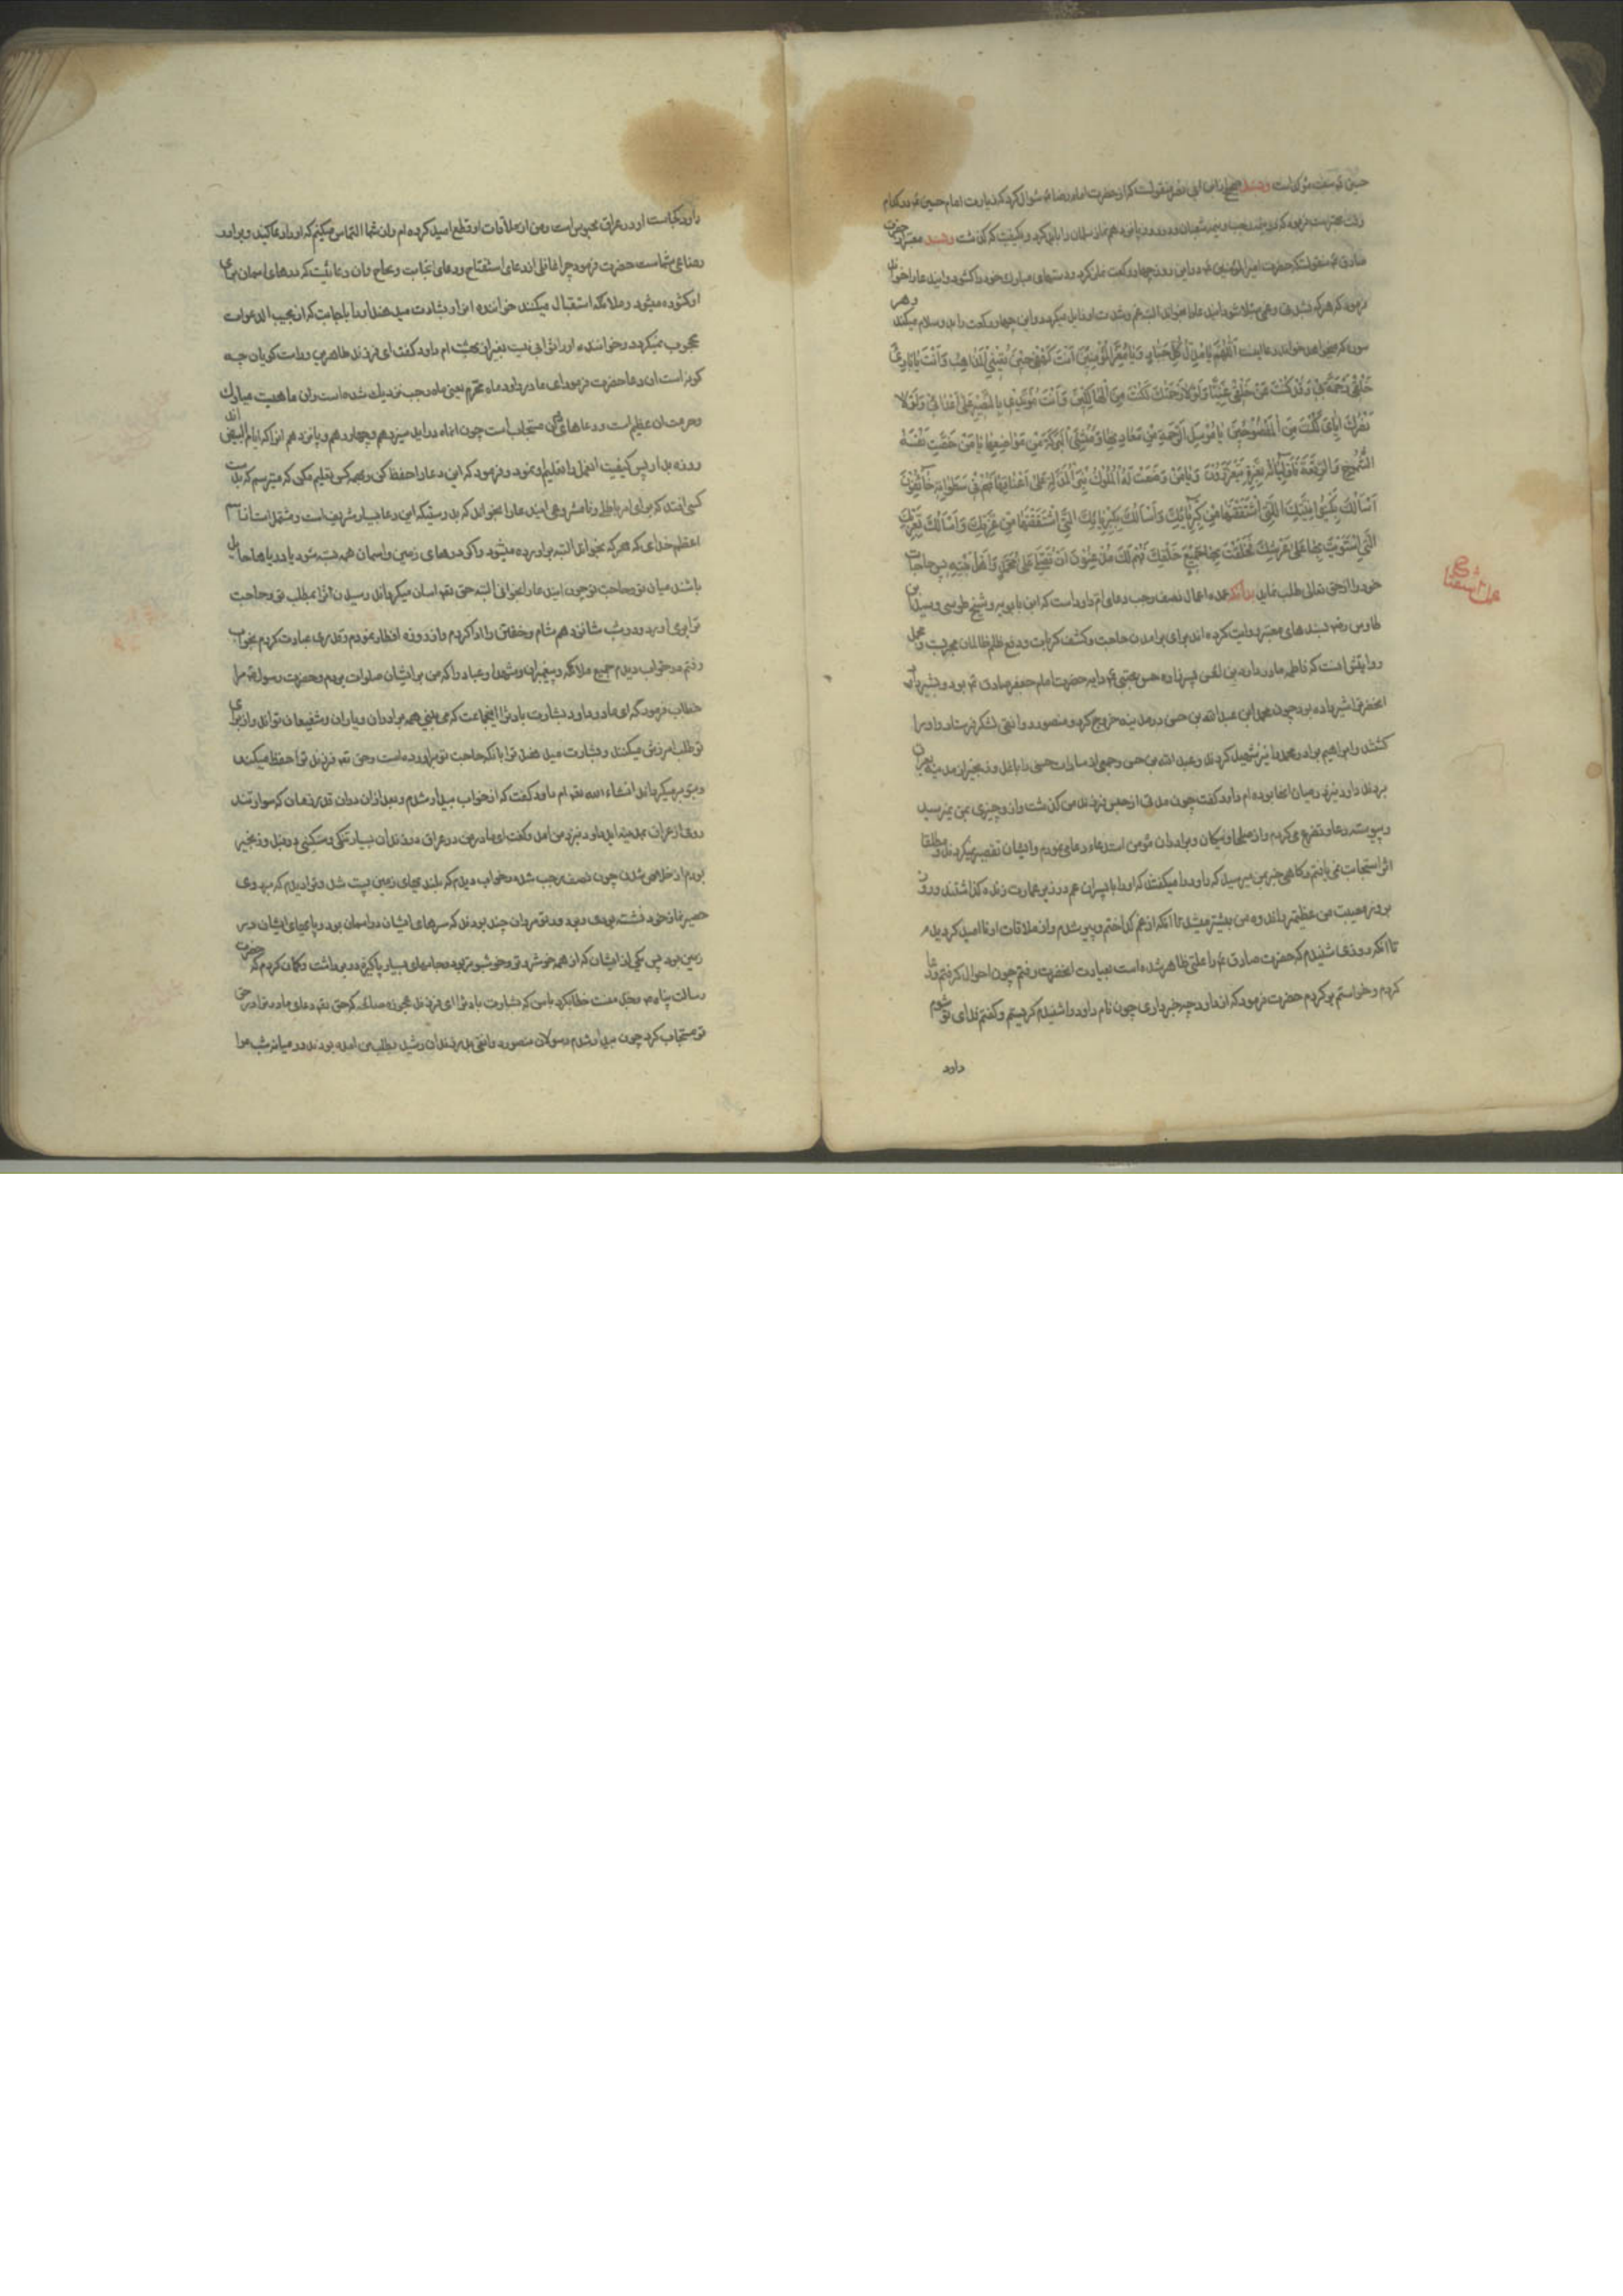 حسین ع سنت مؤکد است و بسند صحیح از ابن ابی نصر منقولست که از حضرت امام رضا ع سؤال کرد که زیارت امام حسین ع در کدام
وقت بهتر است فرمود که در نصف رجب و نیمه شعبان و در روز پانزدهم نماز سلمان را باید کرد بکیفیت که گذشت و بسند معتبر از حضرت
صادق ع منقولست که حضرت امیر المؤمنین ع در این روز چهار رکعت نماز کرد و دستهای مبارک خود را گشود و ایندعا را خواند
و فرمود که هر که بشدتی و غمی مبتلا شود و ایندعا را بخواند البته غم و شدت او زایل میگردد و این چهار رکعت را بدو سلام میکند و هر
سوره که میخواهد خواند و دعا اینست اَللّٰهُمَّ يَا مُذِلَّ كُلِّ جَبَّارٍ وَيَا مُعِزَّ الْمُؤْمِنِينَ اَنْتَ كَهْفِي حِينَ تُعْيِينِي الْمَذَاهِبُ وَاَنْتَ بَارِئُ
خَلْقِي رَحْمَةً بِي وَقَدْ كُنْتَ عَنْ خَلْقِي غَنِيًّا وَلَوْلَا رَحْمَتُكَ لَكُنْتُ مِنَ الْهَالِكِينَ وَاَنْتَ مُؤَيِّدِي بِالنَّصْرِ عَلَى اَعْدَائِي وَلَوْلَا
نَصْرُكَ اِيَّايَ لَكُنْتُ مِنَ الْمَفْضُوحِينَ يَا مُرْسِلَ الرَّحْمَةِ مِنْ مَعَادِنِهَا وَمُنْشِئَ الْبَرَكَةِ مِنْ مَوَاضِعِهَا يَا مَنْ خَصَّ نَفْسَهُ
بِالشُّمُوخِ وَالرِّفْعَةِ فَاَوْلِيَاؤُهُ بِعِزِّهِ يَتَعَزَّزُونَ وَيَا مَنْ وَضَعَتْ لَهُ الْمُلُوكُ نِيرَ الْمَذَلَّةِ عَلَى اَعْنَاقِهَا فَهُمْ مِنْ سَطَوَاتِهِ خَائِفُونَ
اَسْاَلُكَ بِكَيْنُونِيَّتِكَ الَّتِي اشْتَقَقْتَهَا مِنْ كِبْرِيَائِكَ وَاَسْاَلُكَ بِكِبْرِيَائِكَ الَّتِي اشْتَقَقْتَهَا مِنْ عِزَّتِكَ وَاَسْاَلُكَ بِعِزَّتِكَ
الَّتِي اسْتَوَيْتَ بِهَا عَلَى عَرْشِكَ فَخَلَقْتَ بِهَا جَمِيعَ خَلْقِكَ فَهُمْ لَكَ مُذْعِنُونَ اَنْ تُصَلِّيَ عَلَى مُحَمَّدٍ وَاَهْلِ بَيْتِهِ پس حاجات
خود را از حق تعالی طلب نماید بدانکه عمده اعمال نصف رجب دعای ام داود است که ابن بابویه و شیخ طوسی و سید بن
طاوس رض بسندهای معتبر روایت کرده اند برای برآمدن حاجت و کشف کربات و دفع ظلم ظالمان مجربست و مجمل
روایتش اینست که فاطمه مادر داود بن الحسن پسر زاده حسن مجتبی ع دایه حضرت امام جعفر صادق ع بود و بشیر پاک
انحضرترا شیر داده بود چون محمد ابن عبد الله بن حسن در مدینه خروج کرد و منصور دوانقی لشکر فرستاد و او را
کشتند و ابراهیم برادر محمد را نیز شهید کردند و عبد الله بن حسن و جمعی از سادات حسنی را با غل و زنجیر از مدینه بیرون
بردند داود نیز در میان انها بود ام داود گفت چون مدتی از حبس فرزند من گذشت و از او چیزی بمن نمیرسید
و پیوسته دعا و تضرع می کردم و از صلحا و نیکان و برادران مؤمن استدعا دعا می نمودم و ایشان تقصیر نمیکردند و مطلقا
اثر استجابت نمی یافتم و گاهی خبر بمن میرسید که داود را میکفتند که او را با پسران عم در زیر عمارت زنده گذاشتند و روز
بروز مصیبت من عظیمتر و اندوه من بیشتر میشد تا انکه از غم گداختم و پیر شدم و از ملاقات او نا امید گردیدم
تا انکه روزی شنیدم که حضرت صادق ع را علتی ظاهر شده است بعیادت انحضرت رفتم چون احوال گرفتم و دعا
کردم و خواستم برگردم حضرت فرمود که از داود چه خبر داری چون نام داود را شنیدم گریستم و گفتم فدای تو شوم
داود
داود کجاست او در عراق محبوس است و من از ملاقات او قطع امید کرده ام و از شما التماس میکنم که او را دعا کنید و برادر
رضاعی شماست حضرت فرمود چرا غافلی از دعای استفتاح و دعای اجابت و نجاح و ان دعائیست که درهای اسمان برای
او گشوده میشود و ملائکه استقبال میکنند خواننده انرا و بشارت میدهند او را باجابت که از مجیب الدعوات
محجوب نمیگردد و خواننده او را ثوابی نیست بغیر از بهشت ام داود گفت ای فرزند طاهرین و راست گویان چه
گونه است ان دعا حضرت فرمود ای مادر داود ماه محترم یعنی ماه رجب نزدیک شده است و ان ماهیست مبارک
و حرمت ان عظیم است و دعاها در ان مستجاب است چون انماه در اید سیزدهم و چهاردهم و پانزدهم انرا که ایام البیض اند
روزه بدار پس کیفیت انعمل را تعلیم او نمود و فرمود که این دعا را حفظ کن و بهمه کس تعلیم مکن که میترسم که بدست
کسی افتد که برای امر باطل و نا مشروعی ایندعا را بخواند که بدرستیکه این دعا بسیار شریف است و مشتمل است بر نام
اعظم خدای که هر که بخواند البته براورده میشود و اگر درهای زمین و اسمان همه بسته شود یا دریاها حایل
باشند میان تو و حاجت تو چون ایندعا را بخوانی البته حق تعه اسان میگرداند رسیدن انرا بمطلب تو و حاجت
ترا بر می اورد و در شب شانزدهم شام و خفتن را ادا کردم و از روزه افطار نمودم و قدری عبادت کردم بخواب
رفتم در خواب دیدم جمیع ملائکه و پیغمبران و شهدا و عباد را که من بر ایشان صلوات بودم و حضرت رسول ص مرا
خطاب فرمود که ای مادر داود بشارت باد ترا اینجماعت که می بینی همه برادران و یاران و شفیعان تو اند و از برای
تو طلب امرزش میکنند و بشارت میدهند ترا بانکه حاجت تو براورده است و حق تعه فرزند ترا حفظ میکند
و بتو بر میگرداند انشاء الله تعه ام داود گفت که از خواب بیدار شدم و بعد از ان دوان قدر زمان که سوار تند
رو از عراق بمدینه اید داود نزد من امد و گفت ای مادر من در عراق در زندان بسیار تنگی و مسکنی در بند و زنجیر
بودم از خلاصی شدن چون نصف رجب شد در خواب دیدم که بلندیهای زمین پست شد و ترا دیدم که بر روی
حصیر نماز خود نشسته بودی و بر دور تو مردان چند بودند که سرهای ایشان در اسمان بود و پایهای ایشان در
زمین بود پس یکی از ایشان که از همه خوش رو تر و خوشبو تر بود و جامهای بسیار پاکیزه در بر داشت و گمان کردم که حضرت
رسالت پناه ص بجد منست خطاب کرد با من که بشارت باد ترا ای فرزند عجوزه صالحه که حق تعه دعای مادر ترا در حق
تو مستجاب کرد چون بیدار شدم رسولان منصور دوانقی بدر زندان رسید بطلب من امده بودند در میان شب مرا